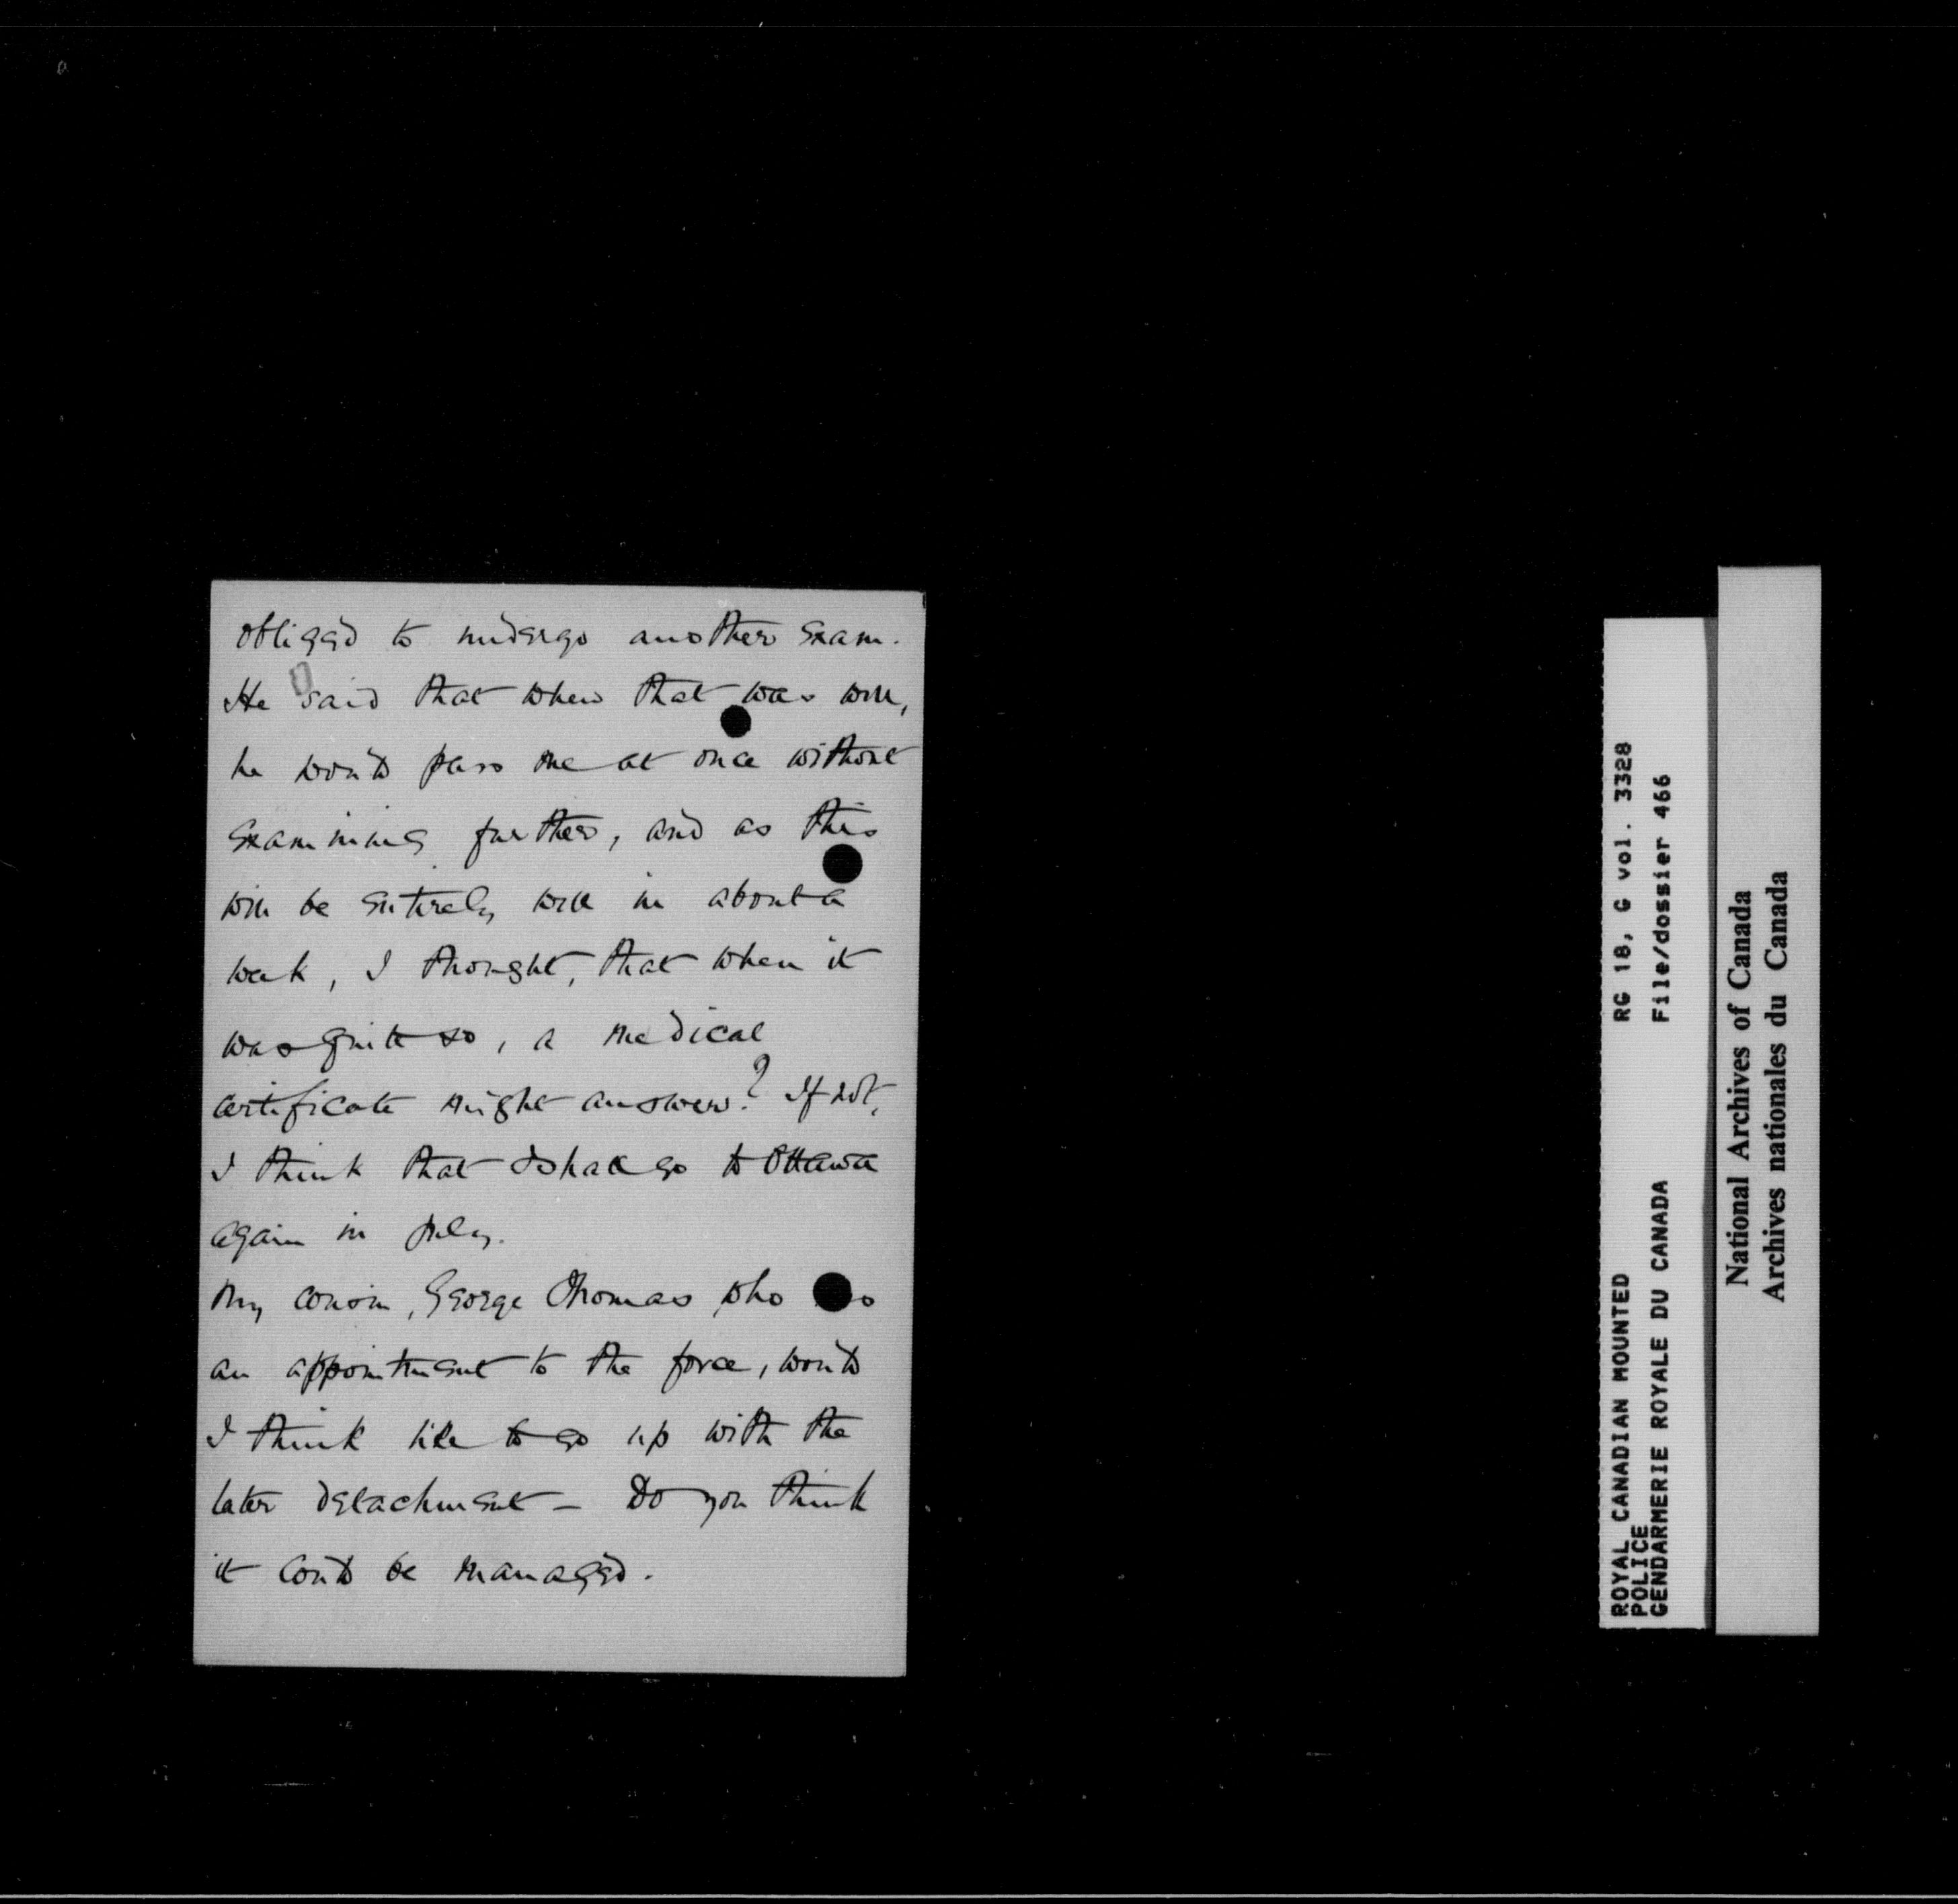 obliged to undergo another exam.
He said that when that was well,
he would pass me at once without
examining further, and as this
will be entirely well in about a
week, I thought, that when it
was quite so, a medical
certificate might answer? If not,
I think that I shall go to Ottawa
again in July.
My cousin, George Thomas who
an appointment to the force, would
I think like to go up with the
later detachment – Do you think
it could be managed.
ROYAL CANADIAN MOUNTED RG 18, G vol. 3328
POLICE
GENDARMERIE ROYALE DU CANADA File/dossier 466
National Archives of Canada
Archives nationales du Canada